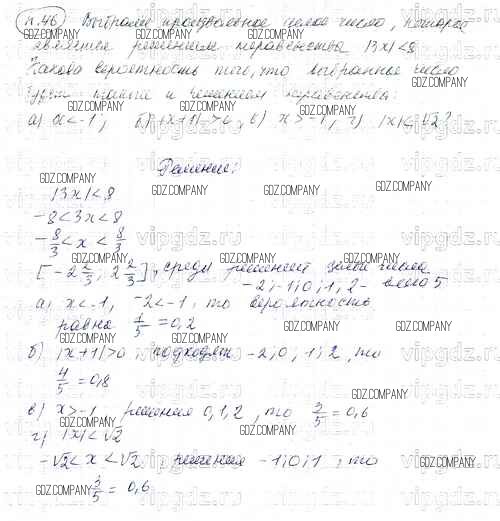 п.46) Выбрали произвольное целое число, которое
является решением неравенства |3x|<8
Какова вероятность того, что выбранное число
будет также и решением неравенства:
а) x<-1; б) |x+1|>0; в) x>-1; г) |x|<√2?
Решение:
|3x|<8
-8<3x<8
-8/3<x<8/3
[-2 2/3; 2 2/3], среди решений целые числа
-2;-1;0;1;2- всего 5
а) x<-1, -2<-1, то вероятность
равна 1/5=0,2
б) |x+1|>0 подходят -2;0;1;2, то
4/5=0,8
в) x>-1 решения 0,1,2, то 3/5=0,6
г) |x|<√2
-√2<x<√2, решения -1;0;1, то
3/5=0,6